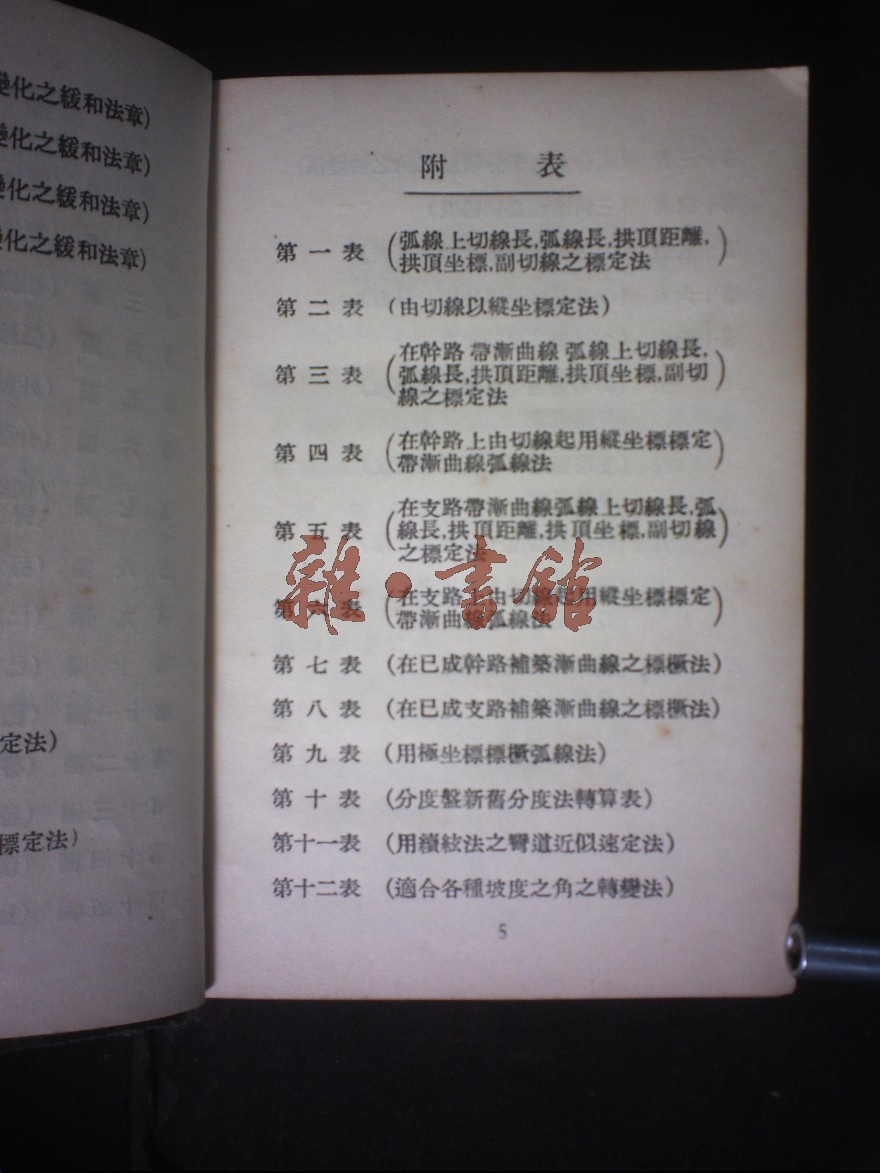 變化之緩和法章)
變化之緩和法章)
變化之緩和法章)
變化之緩和法章)
定法)
標定法)
附 表
第一表 (弧線上切線長,弧線長,拱頂距離,
拱頂坐標,副切線之標定法)
第二表 (由切線以縱坐標定法)
第三表 (在幹路 帶漸曲線 弧線上切線長,
弧線長,拱頂距離,拱頂坐標,副切
線之標定法)
第四表 (在幹路上由切線起用縱坐標標定
帶漸曲線弧線法)
第五表 (在支路帶漸曲線弧線上切線長,弧
線長,拱頂距離,拱頂坐標,副切線
之標定法)
第六表 (在支路上由切線起用縱坐標標定
帶漸曲線弧線法)
第七表 (在已成幹路補築漸曲線之標橛法)
第八表 (在已成支路補築漸曲線之標橛法)
第九表 (用極坐標標橛弧線法)
第十表 (分度盤新舊分度法轉算表)
第十一表 (用續絃法之彎道近似速定法)
第十二表 (適合各種坡度之角之轉變法)
5
雜·書館